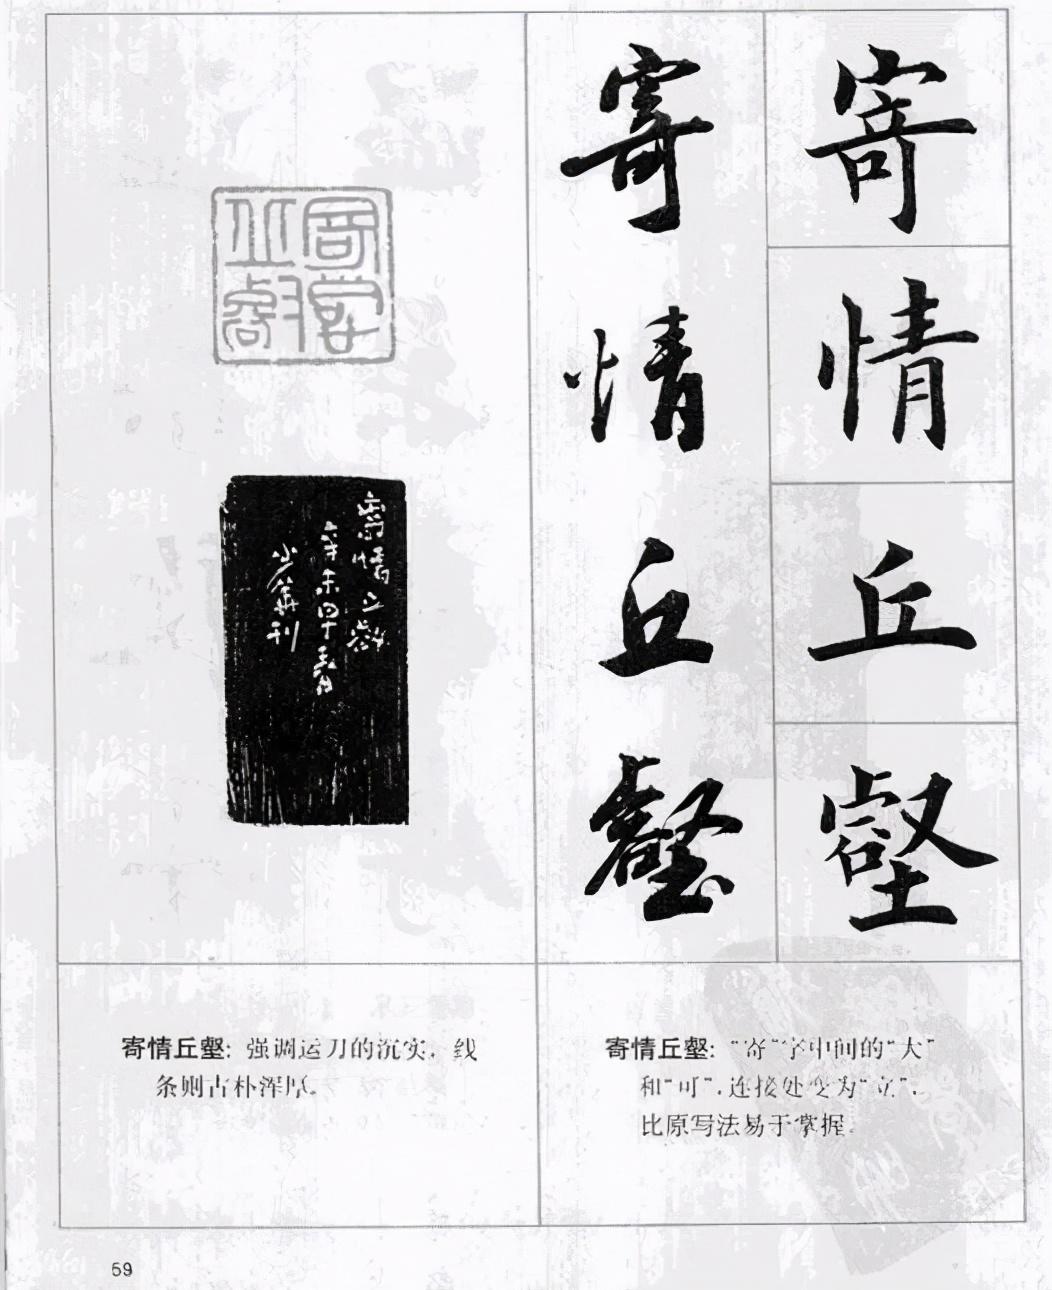 寄
情
丘
壑
寄情丘壑
寄情丘壑
寄情丘壑
辛未四十春
少华刊
寄情丘壑：强调运刀的沉实，线
条则古朴浑厚。
寄情丘壑："寄"字中间的"大"
和"可"，连接处变为"立"，
比原写法易于掌握。
59